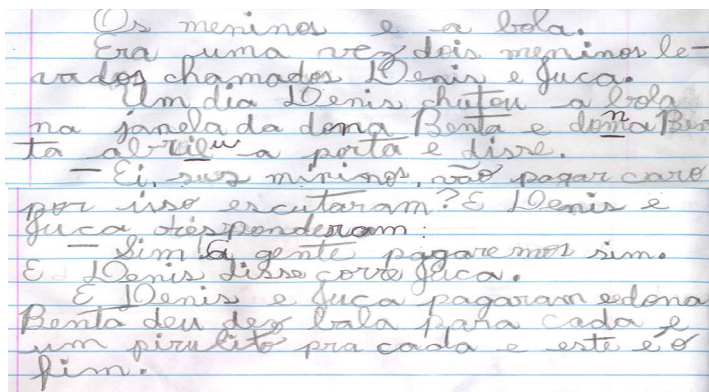 Os meninos e a bola.
Era uma vez dois meninos le-
vados chamados Denis e Juca.
Um dia Denis chutou a bola
na janela da dona Benta e dona Ben
ta abril u a porta e disse.
— Ei, sus mininos, vão pagar caro
por isso escutaram? E Denis e
Juca responderam:
— Sim! A gente pagaremos sim.
E Denis disse corre Juca.
E Denis e Juca pagaram e dona
Benta deu dez bala para cada e
um pirulito pra cada e este é o
fim.